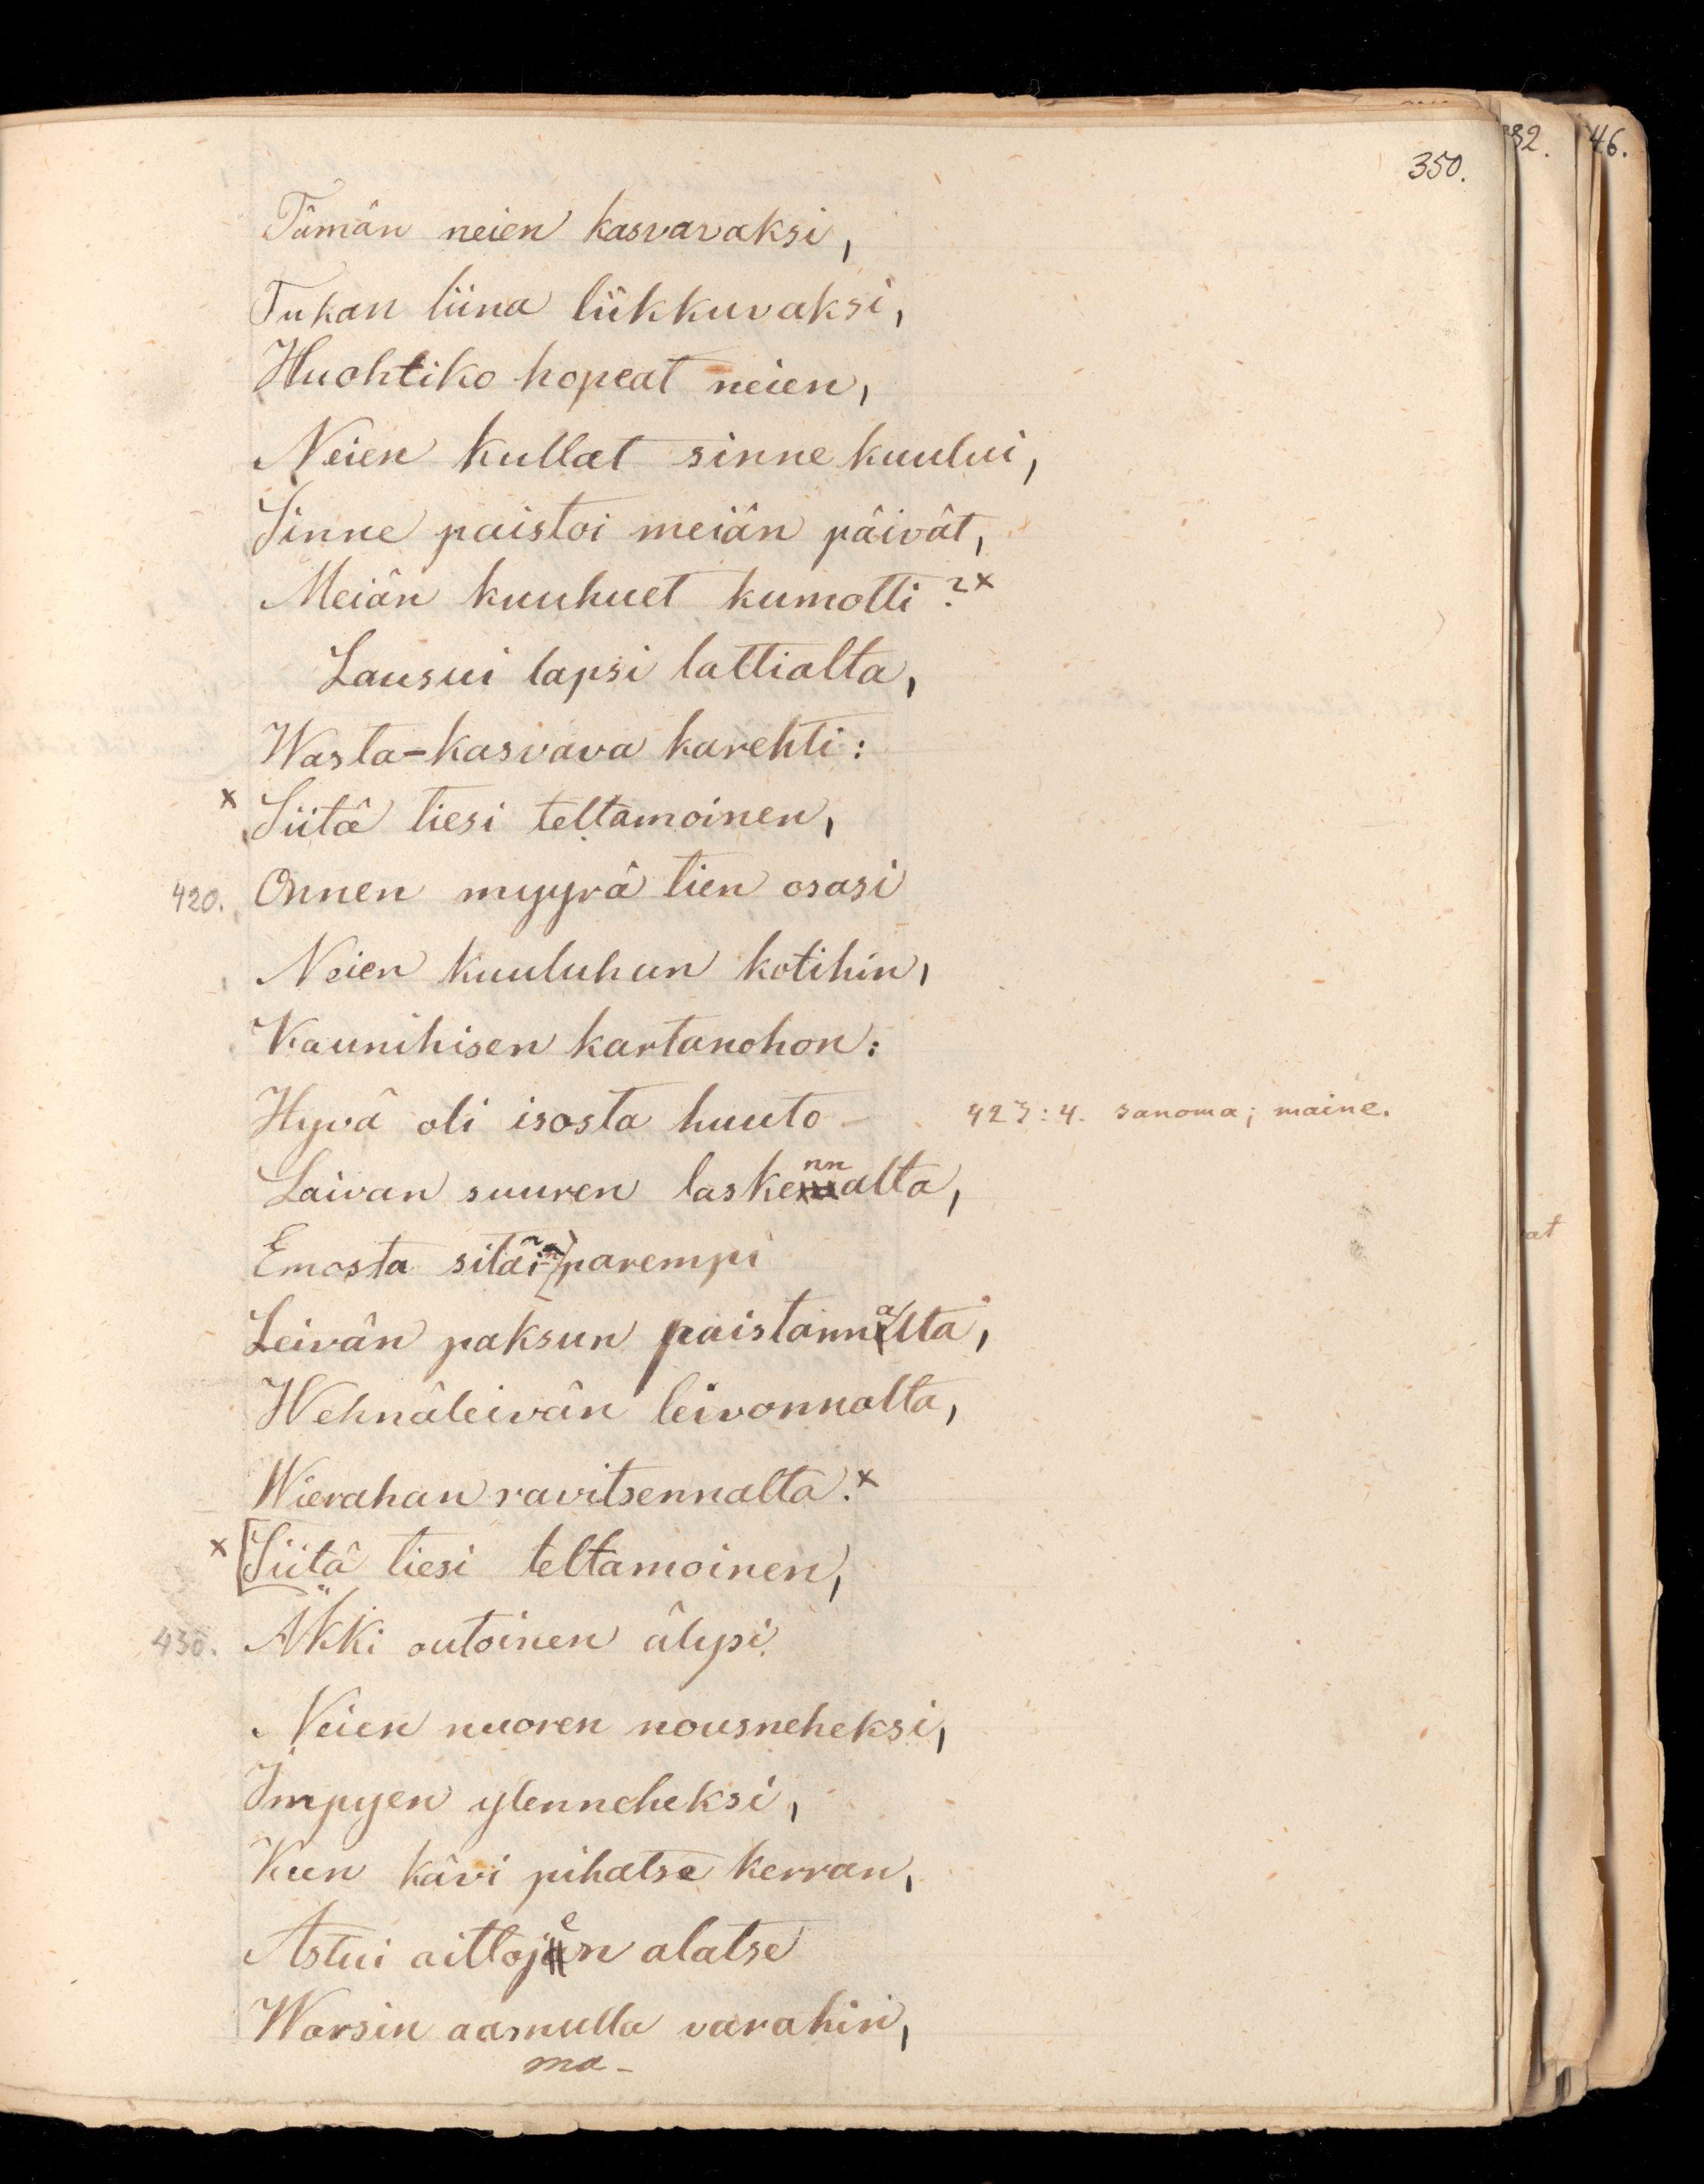 350.
32.
46.
Tämän neien kasvavaksi,
Tukan liina liikkuvaksi,
Huohtiko hopeat neien,
Neien kullat sinne kuului,
Sinne paistoi meiän päivät,
Meiän kuuhuet kumotti?x
Lausui lapsi lattialta,
Wasta-kasvava karehti:
x Siitä tiesi teltamoinen,
420. Onnen myyrä tien osasi
Neien kuuluhun kotihin,
Kaunihisen kartanohon:
Hyvä oli isosta huuto 423:4. sanoma; maine.
Laivan suuren laskennalta,
Emosta sitäi parempi
Leivän paksun paistannalta,
Wehnäleivän leivonnalta,
Wierahan ravitsennalta.x
x [Siitä tiesi teltamoinen,
430. Äkki outoinen älysi
Neien nuoren nousneheksi,
Impyen ylenneheksi,
Kun kävi pihatse kerran,
Astui aittojen alatse
Warsin aamulla varahin,
ma-
at